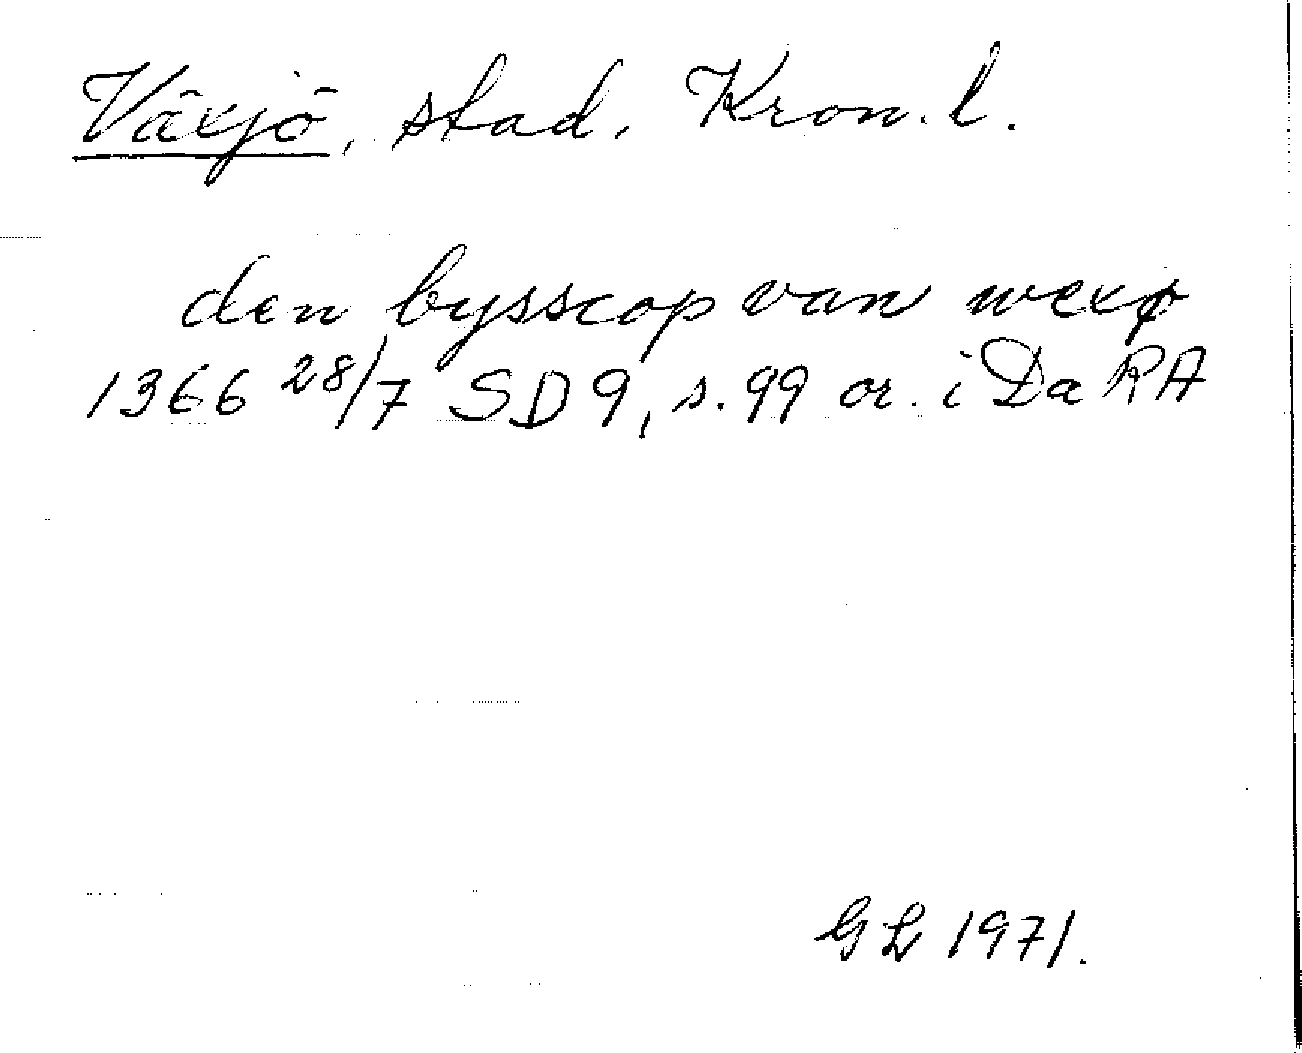 Växjö, stad. Kron. l.
den bysscop van wexø
1366 28/7 SD 9, s. 99 or. i Da RA
GL 1971.